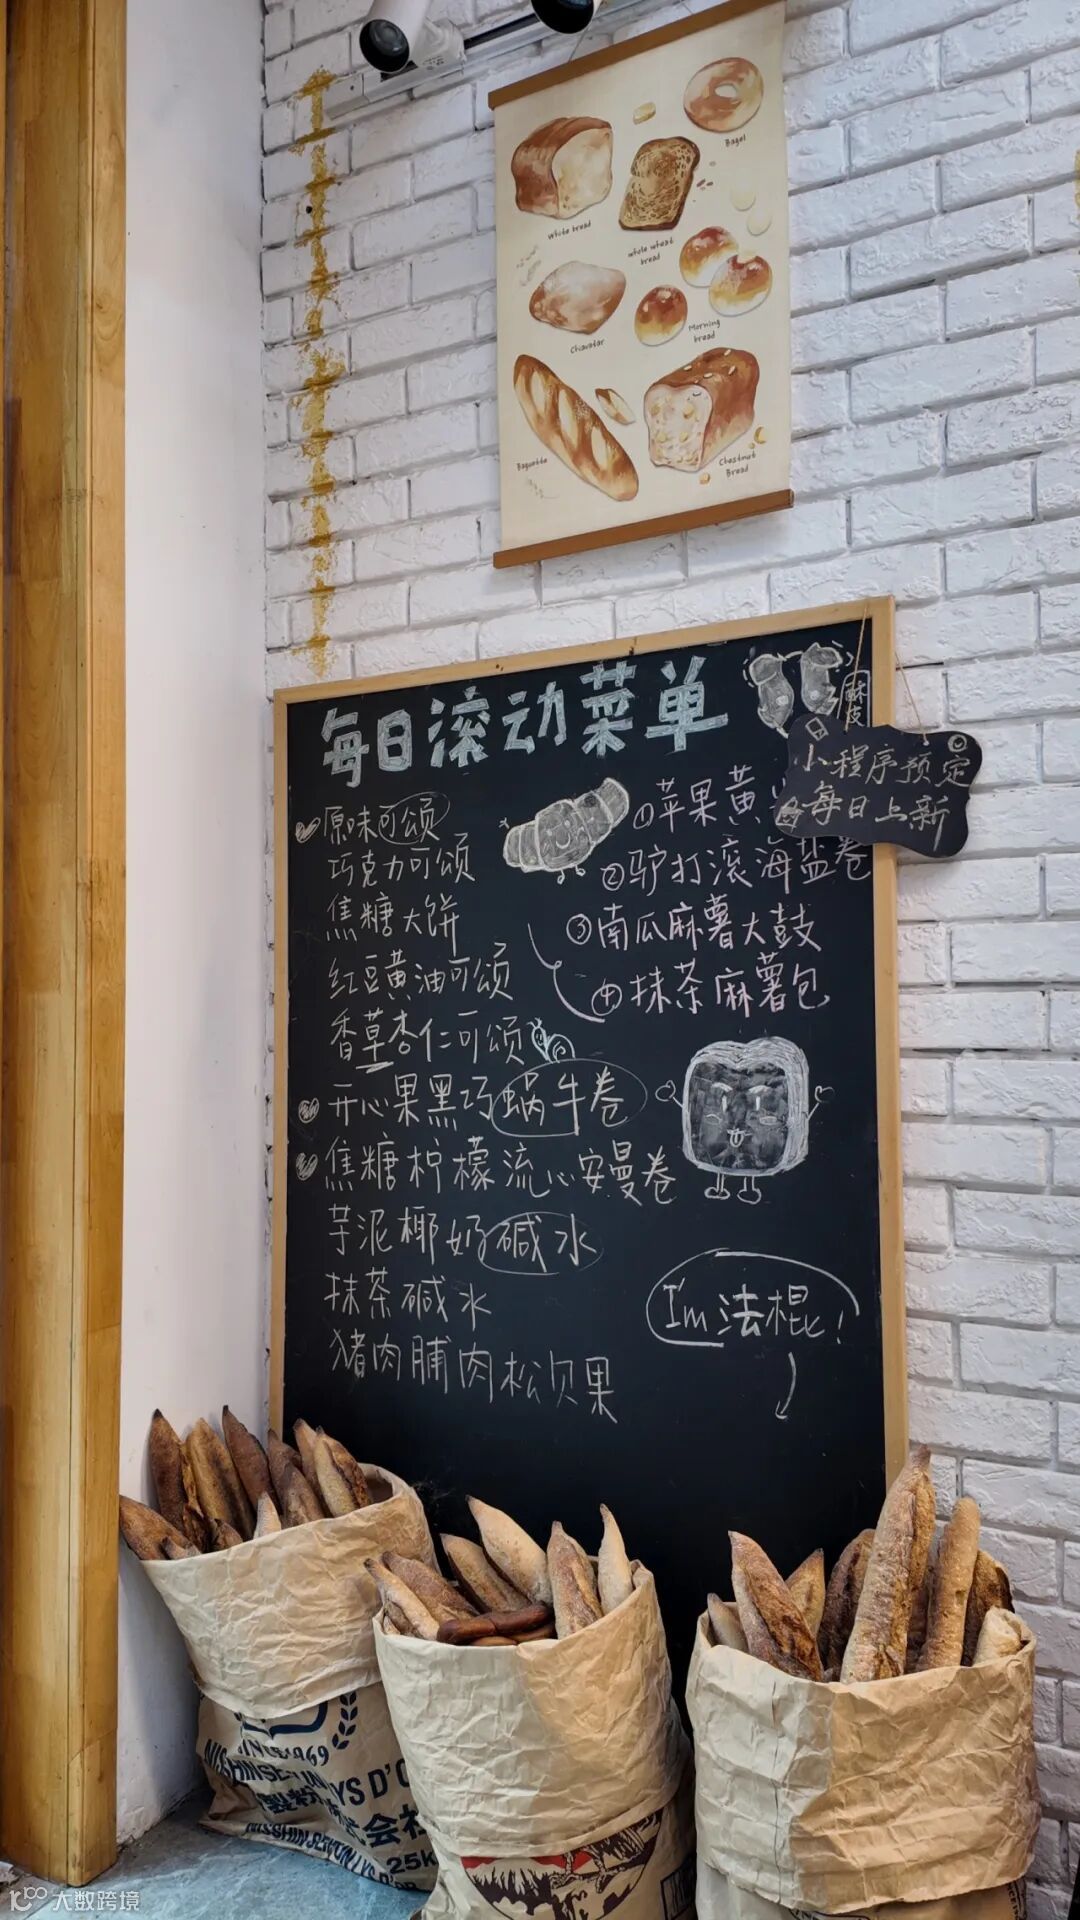 Bagel
White bread
whole wheat
bread
Morning
bread
Chiavatar
Baguette
Chestnut
Bread
每日滚动菜单
麻皮
小程序预定
每日上新
原味可颂
巧克力可颂
焦糖大饼
红豆黄油可颂
香草杏仁可颂
开心果黑巧蜗牛卷
焦糖柠檬流心安曼卷
芋泥椰奶碱水
抹茶碱水
猪肉脯肉松贝果
①苹果黄
②驴打滚海盐卷
③南瓜麻薯大鼓
④抹茶麻薯包
I'm法棍!
SINCE 1969
NISSHIN SEIFUN
NISSHIN SEIFUN
25k
大数跨境